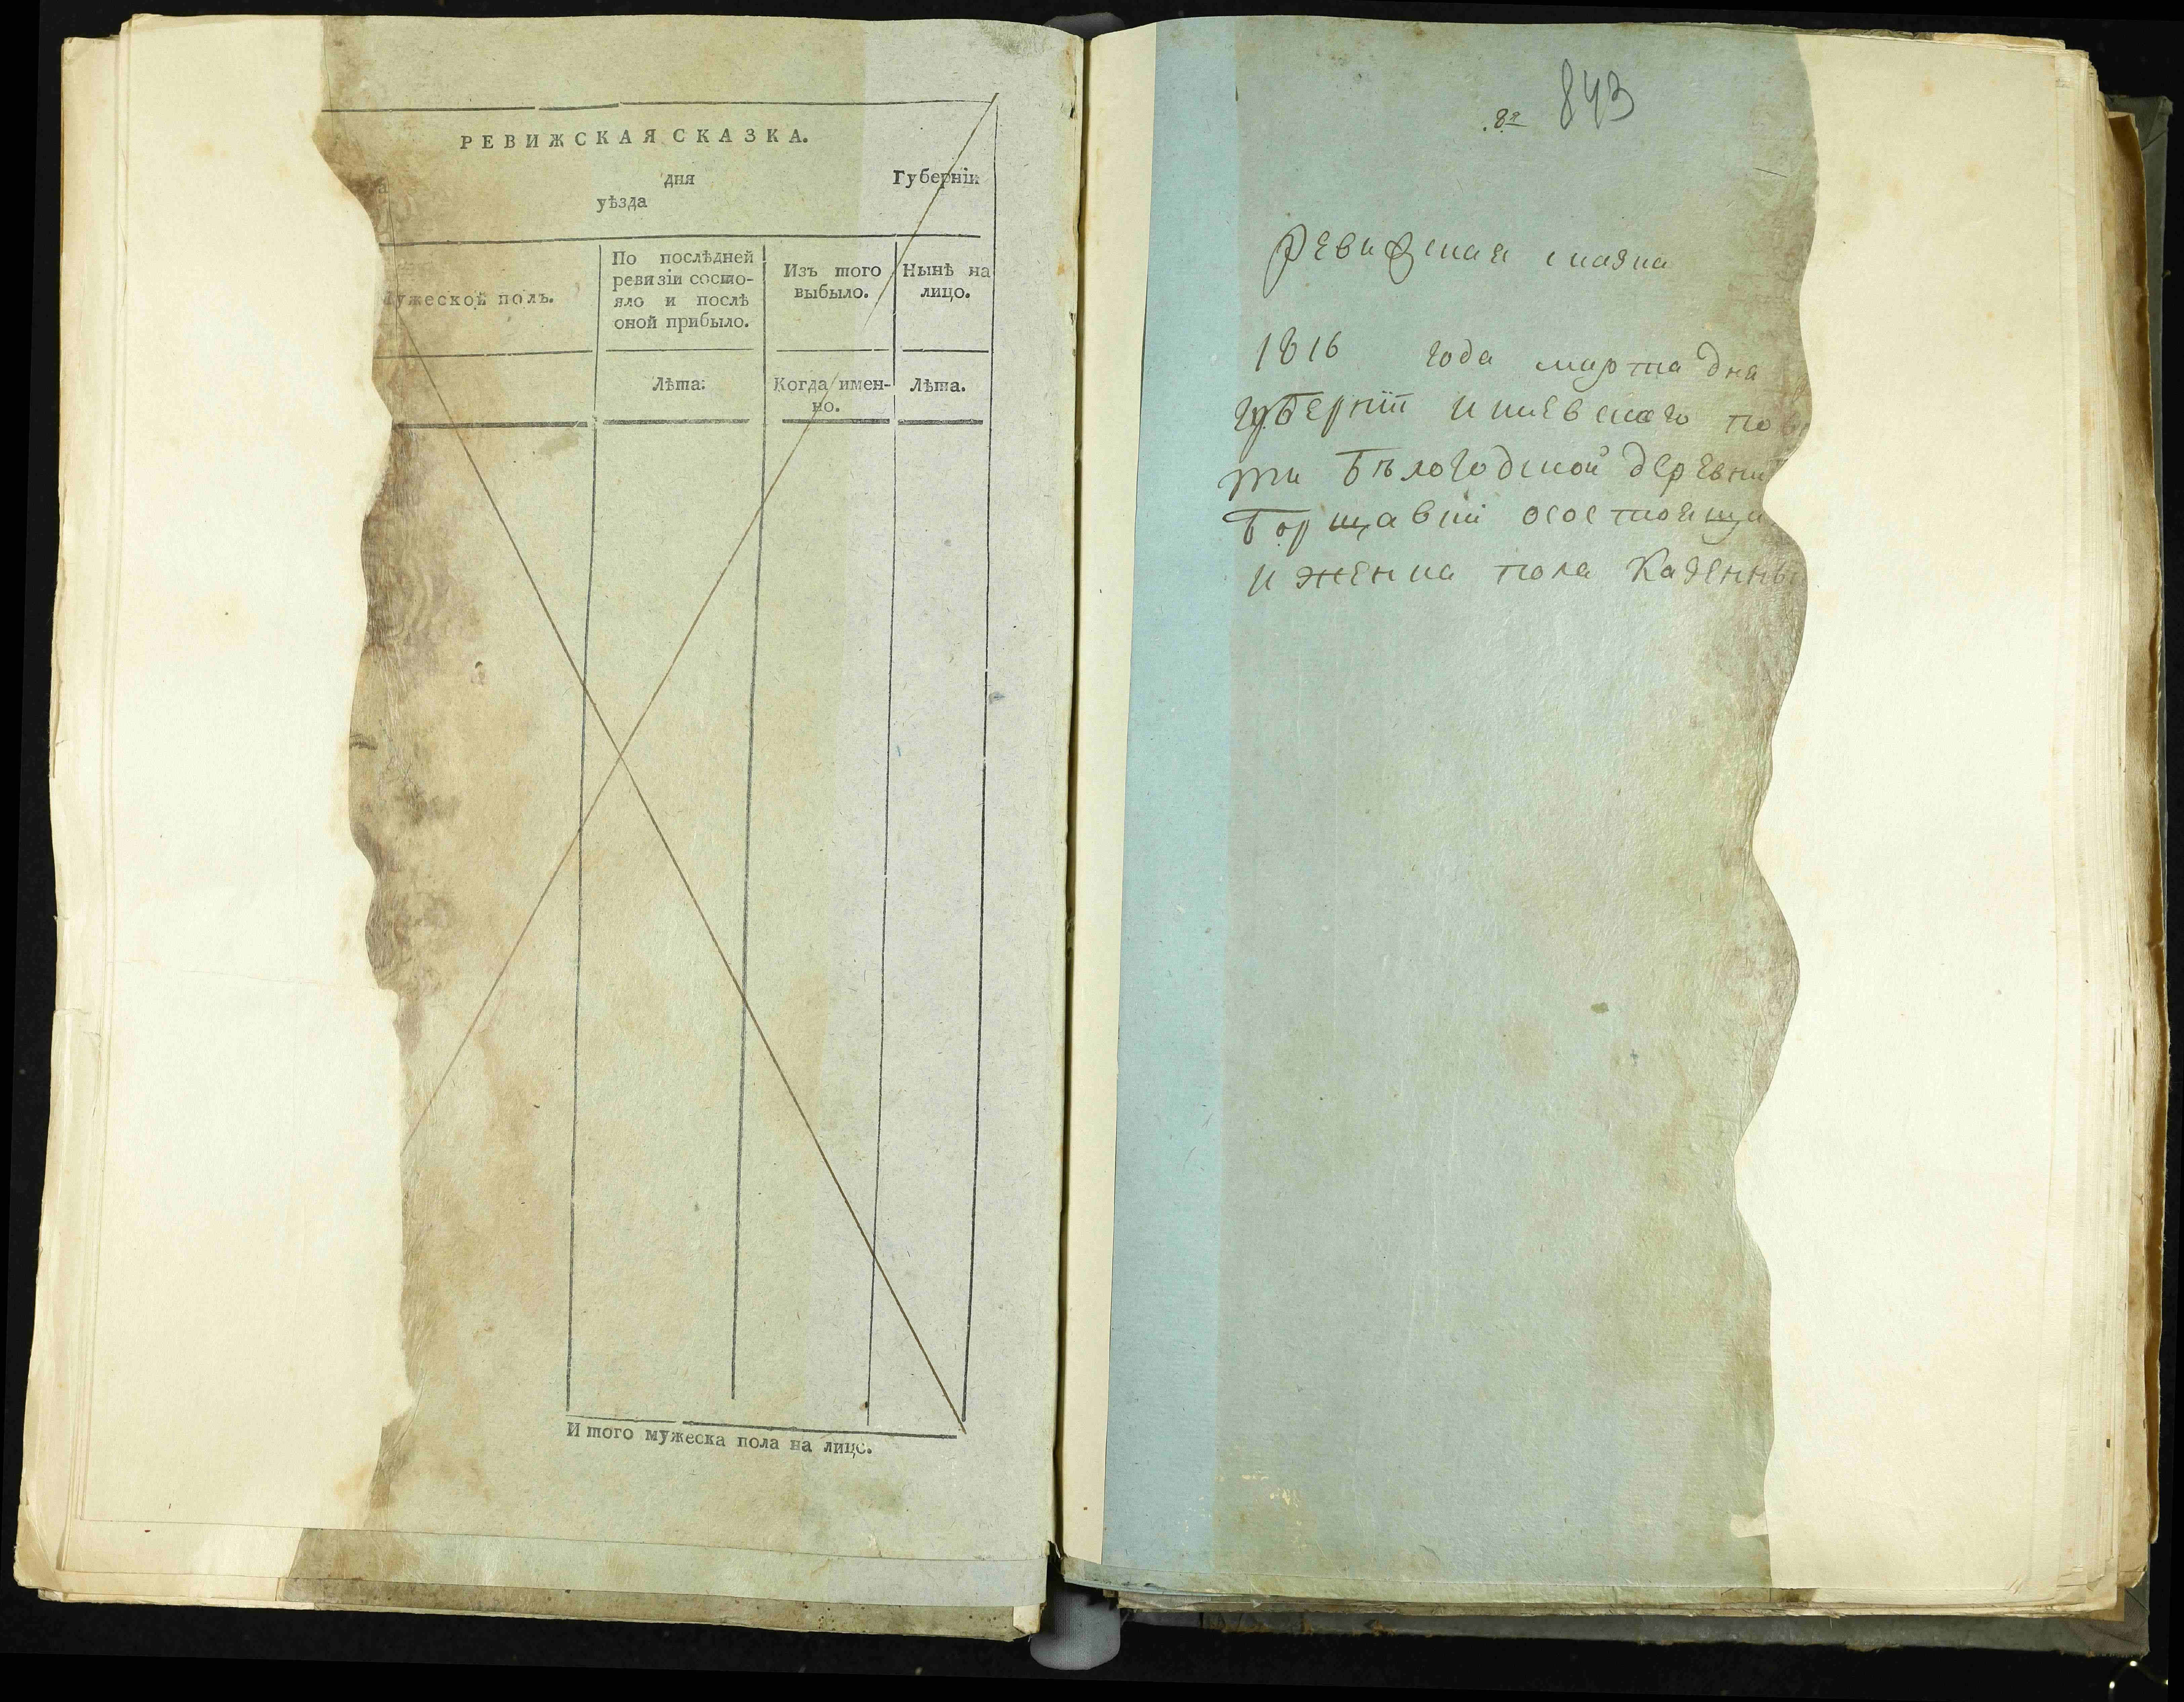 РЕВИЖСКАЯ СКАЗКА.
дня Губерніи
уѣзда
Мужескои полъ.
По послѣдней
ревизіи состо-
яло и послѣ
оной прибыло.
Изъ того
выбыло.
Нынѣ на
лицо.
Лѣта:
Когда имен-
но.
Лѣта.
И того мужеска пола на лицо.
843
Ревизская сказка
1816 года марта дня
губерніи Киевского пов
ти Бѣлогодской деревни
Борщавки осостоящи
и женска пола Казенны